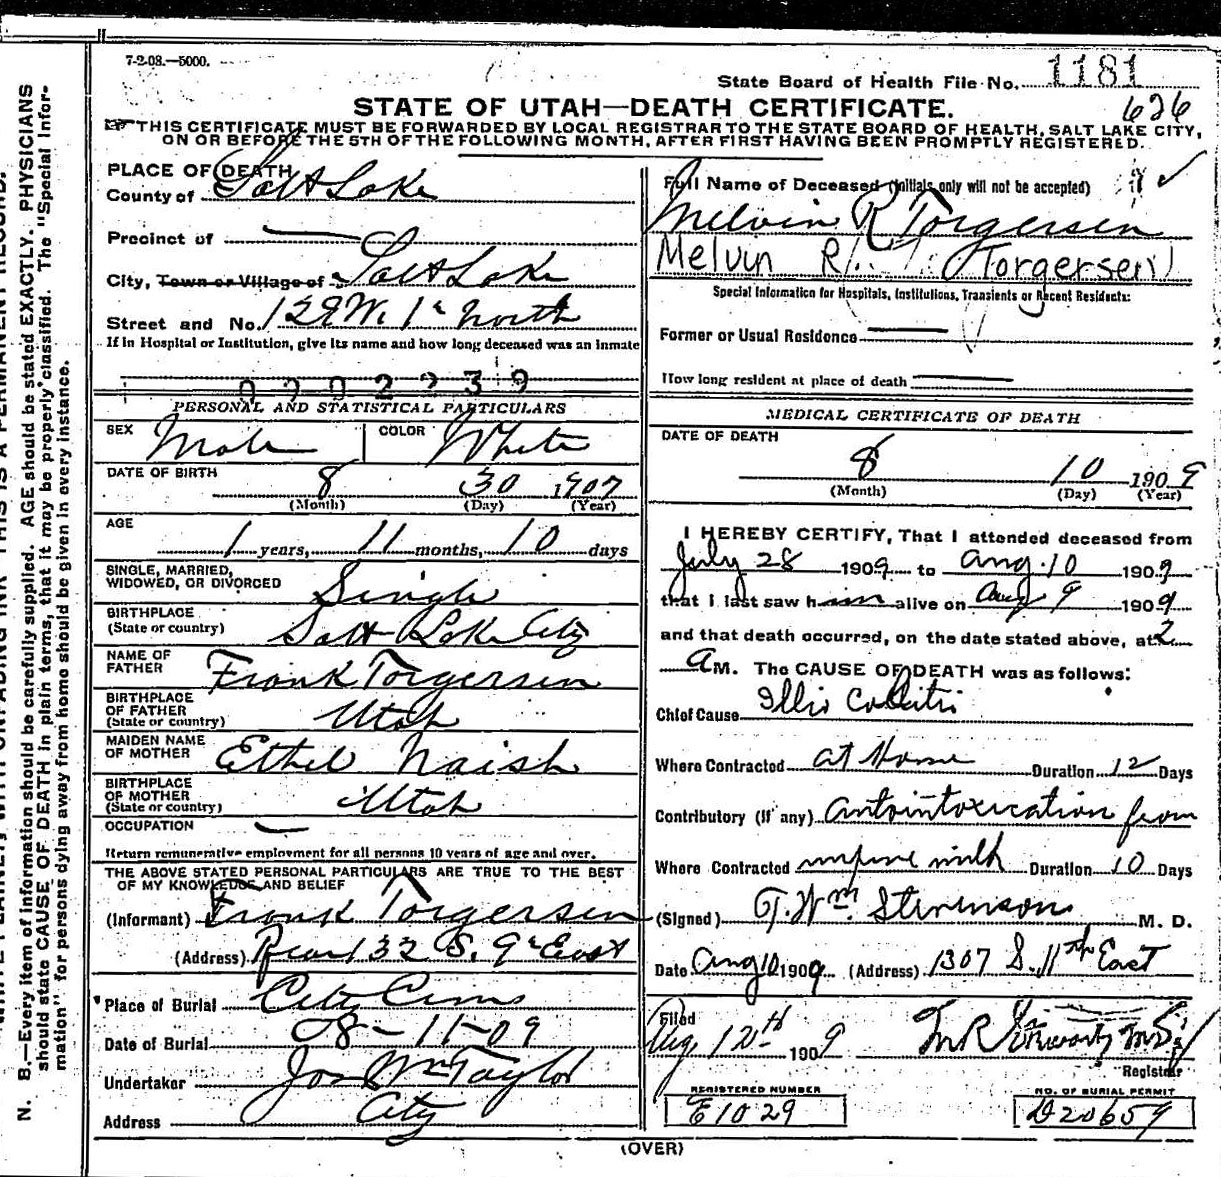 7-2-08.—5000.
State Board of Health File No. 1181
STATE OF UTAH—DEATH CERTIFICATE.
626
THIS CERTIFICATE MUST BE FORWARDED BY LOCAL REGISTRAR TO THE STATE BOARD OF HEALTH, SALT LAKE CITY,
ON OR BEFORE THE 5TH OF THE FOLLOWING MONTH, AFTER FIRST HAVING BEEN PROMPTLY REGISTERED.
PLACE OF DEATH
County of Salt Lake
Precinct of —
City, Town or Village of Salt Lake
Street and No. 129 W. 1st North
If in Hospital or Institution, give its name and how long deceased was an inmate
0702239
PERSONAL AND STATISTICAL PARTICULARS
SEX Male COLOR White
DATE OF BIRTH
8 30 1907
(Month) (Day) (Year)
AGE
1 years, 11 months, 10 days
SINGLE, MARRIED,
WIDOWED, OR DIVORCED Single
BIRTHPLACE
(State or country) Salt Lake City
NAME OF
FATHER Frank Torgersen
BIRTHPLACE
OF FATHER
(State or country) Utah
MAIDEN NAME
OF MOTHER Ethel Naish
BIRTHPLACE
OF MOTHER
(State or country) Utah
OCCUPATION —
Return remunerative employment for all persons 10 years of age and over.
THE ABOVE STATED PERSONAL PARTICULARS ARE TRUE TO THE BEST
OF MY KNOWLEDGE AND BELIEF
(Informant) Frank Torgersen
(Address) Rear 132 S. 9th East
Place of Burial City Cem
Date of Burial 08-11-09
Undertaker Jos Wm Taylor
Address City
Full Name of Deceased (Initials only will not be accepted)
Melvin R Torgersen
Melvin R. Torgersen
Special Information for Hospitals, Institutions, Transients or Recent Residents:
Former or Usual Residence —
How long resident at place of death —
MEDICAL CERTIFICATE OF DEATH
DATE OF DEATH
8 10 1909
(Month) (Day) (Year)
I HEREBY CERTIFY, That I attended deceased from
July 28 1909 to Aug. 10 1909
that I last saw him alive on Aug 9 1909
and that death occurred, on the date stated above, at 2
AM. The CAUSE OF DEATH was as follows:
Chief Cause Illio Collitis
Where Contracted at Home Duration 12 Days
Contributory (if any) Autointoxication from
Where Contracted impure milk Duration 10 Days
(Signed) G. Wm. Stevenson M. D.
Date Aug 10 1909 (Address) 1307 S. 11th East
Filed
Aug 12th 1909 M R Stewart M.D.
Registrar
REGISTERED NUMBER
E1029
NO. OF BURIAL PERMIT
D20659
(OVER)
N. B.—Every item of information should be carefully supplied. AGE should be stated EXACTLY. PHYSICIANS
should state CAUSE OF DEATH in plain terms, that it may be properly classified. The "Special Infor-
mation" for persons dying away from home should be given in every instance.